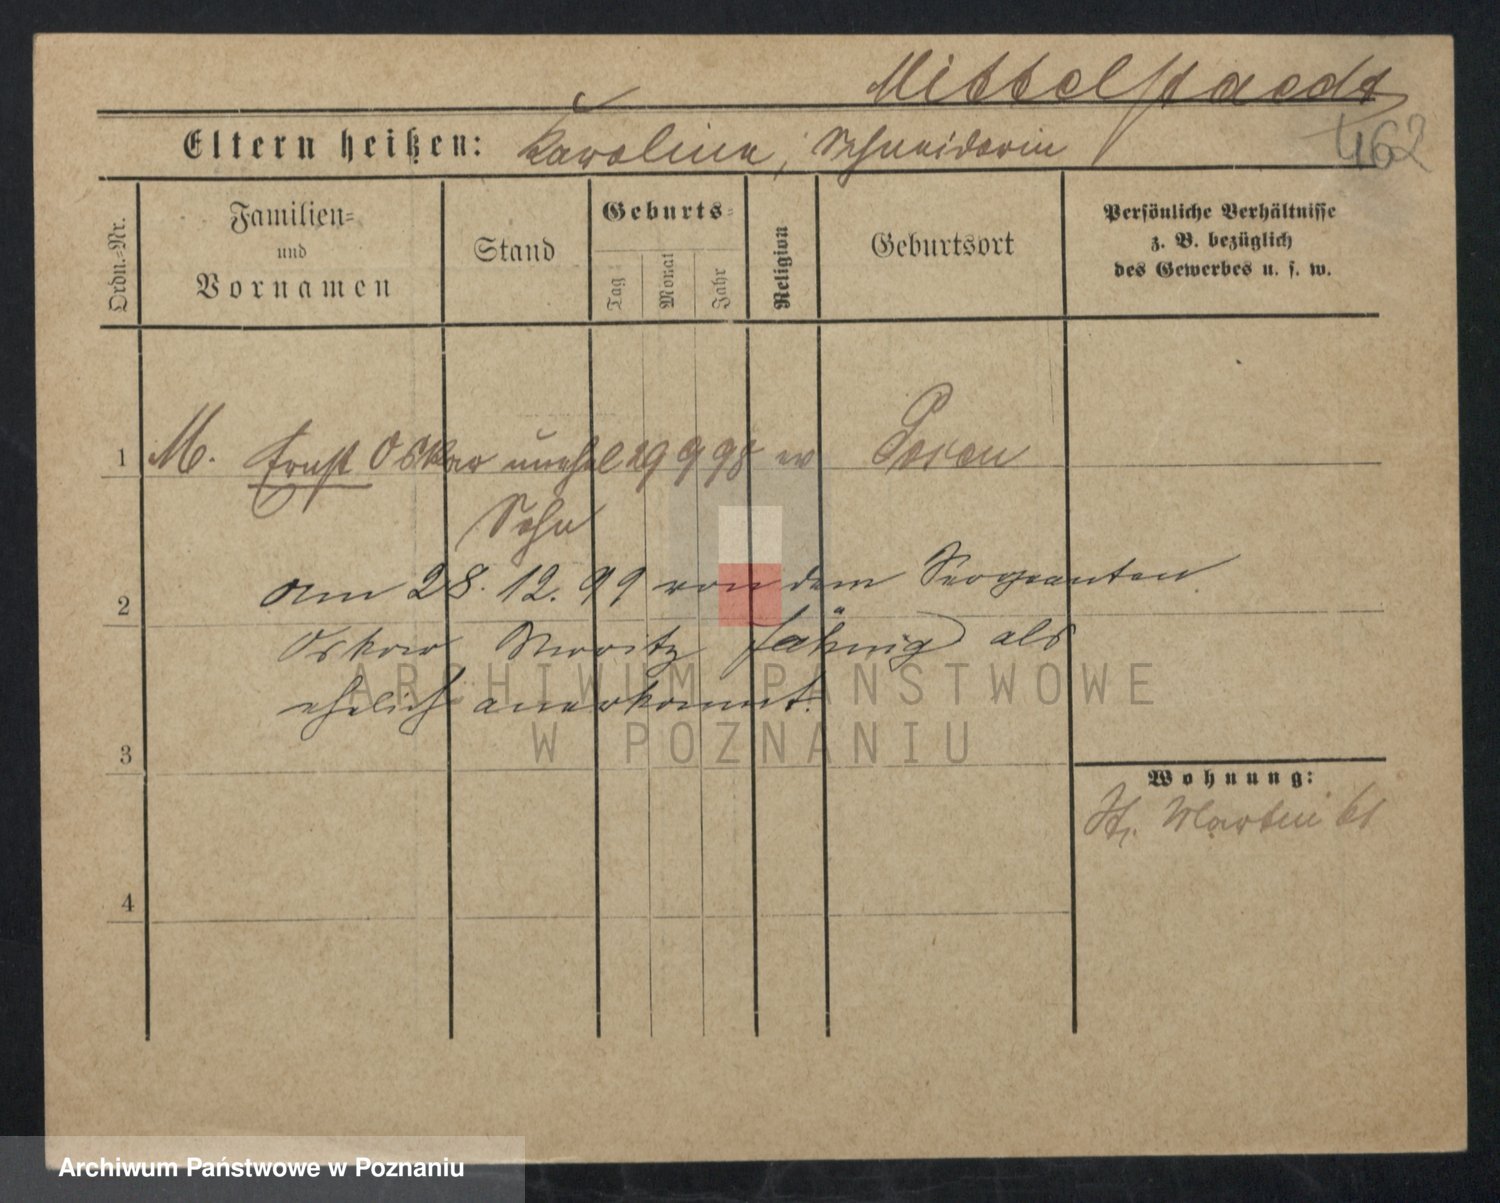 Mittelstaedt
Eltern heißen: Karoline, Schneiderin
462
Ordn.-Nr.
Familien-
und
Vornamen
Stand
Geburts-
Tag
Monat
Jahr
Religion
Geburtsort
Persönliche Verhältnisse
z. B. bezüglich
des Gewerbes u. s. w.
1 M. Ernst Oskar unehel 29 9 98 ev Posen
Sohn
am 28. 12. 99 von dem Sergeanten
2
Oskar Moritz Fähnig als
ehelich anerkannt.
ARCHIWUM PAŃSTWOWE
W POZNANIU
3
Wohnung:
St. Martin 61
4
Archiwum Państwowe w Poznaniu